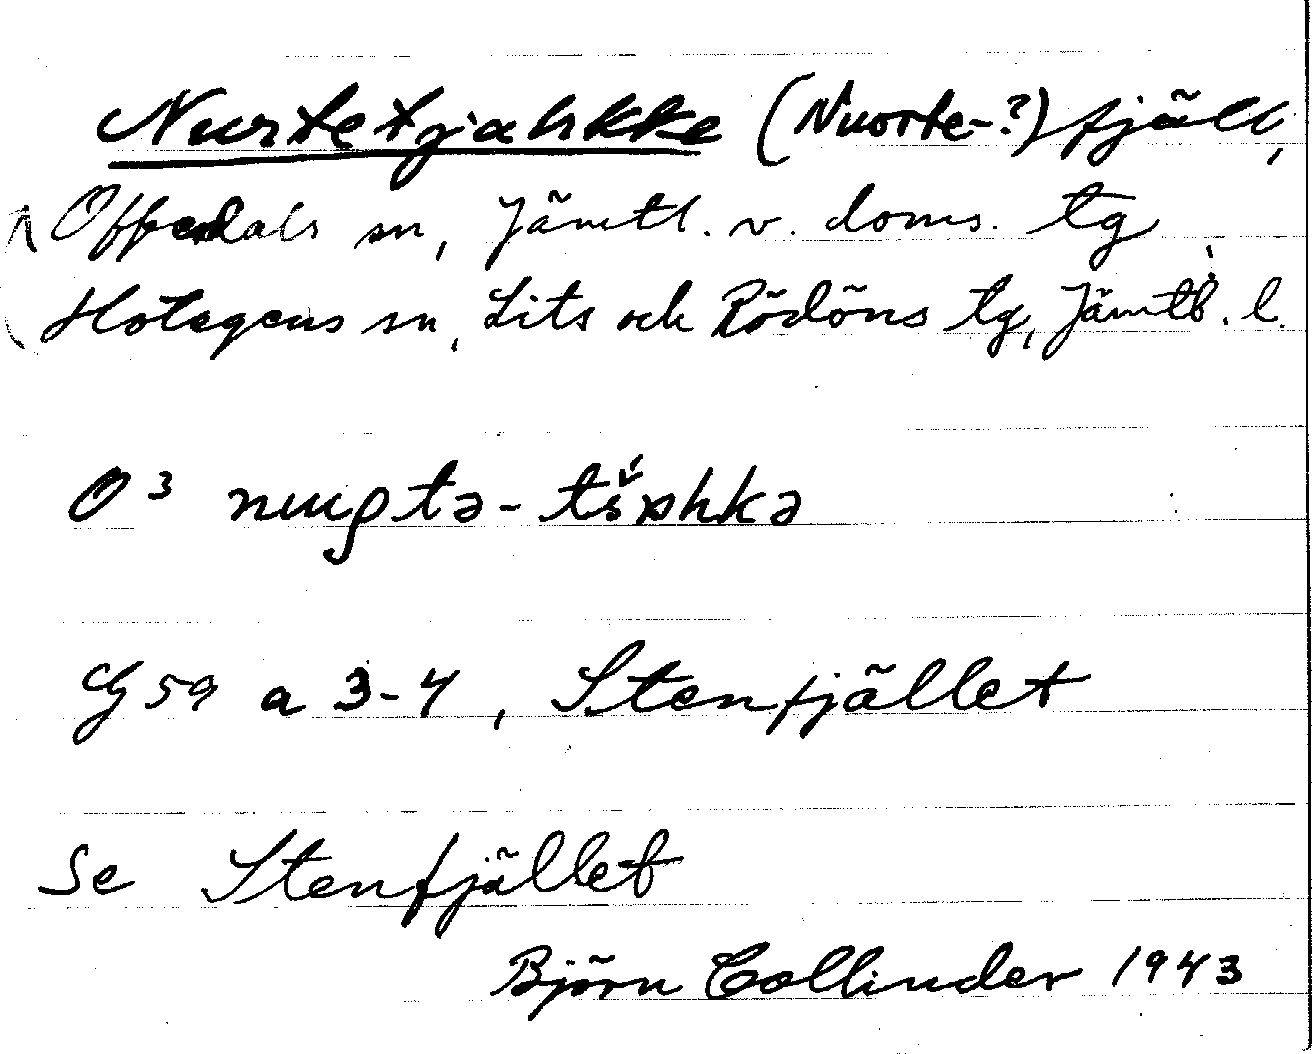 Nurtetjahkke (Nuorte-?) fjäll,
Offerdals sn, Jämtl. v. doms. tg
Hotagens sn, Lits och Rödöns tg, Jämtl. l.
O³
G 59 a 3-4, Stenfjället
Se Stenfjället
Björn Collinder 1943